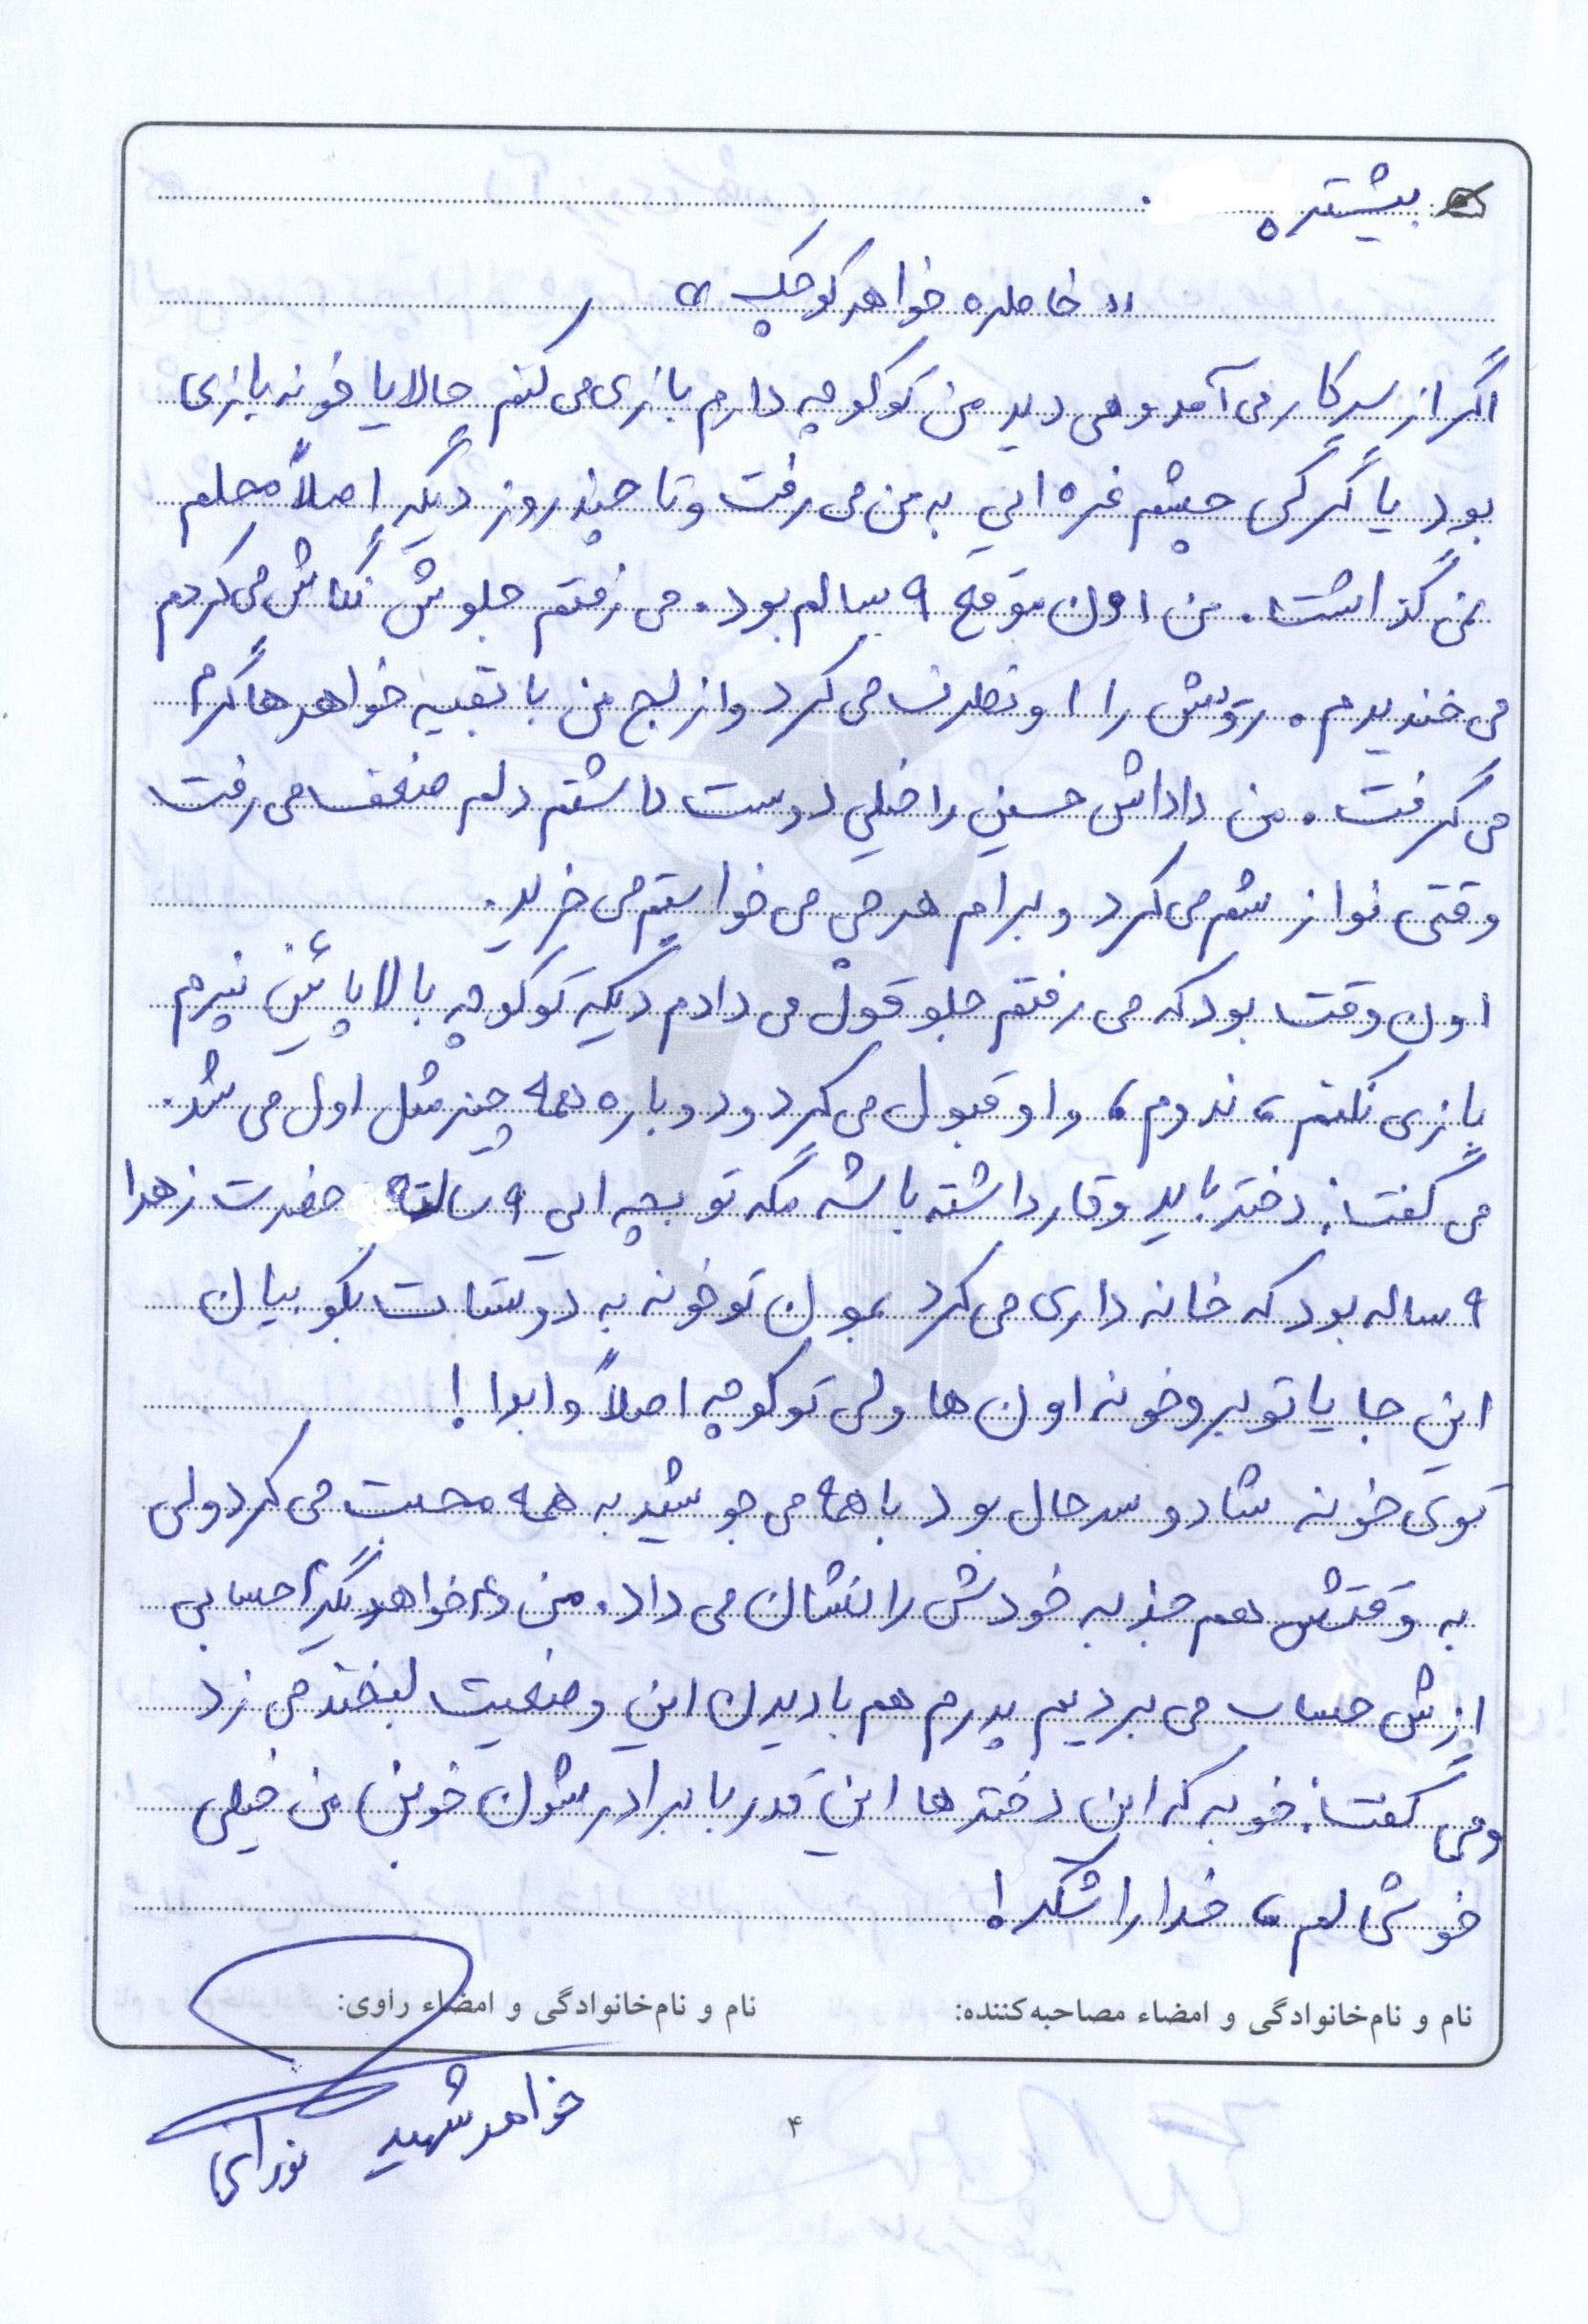 بیشتره .
" خاطره خواهر کوچک "
اگر از سر کار می آمد و می دید من تو کوچه دارم بازی می کنم حالا یا خونه بازی
بود یا گرگی چشم غره ایی به من می رفت و تا چند روز دیگه اصلاً محلم
نمی گذاشت. من اون موقع ۹ سالم بود. می رفتم جلوش نگاش می کردم
می خندیدم. رویش را اونطرف می کرد و از لج من با بقیه خواهرها گرم
می گرفت. من داداش حسین را خیلی دوست داشتم دلم ضعف می رفت
وقتی نوازشم می کرد و برام هر چی می خواستم می خرید.
اون وقت بود که می رفتم جلو قول می دادم دیگه تو کوچه بالا پائین نپرم
بازی نکنم، ندوم، و او قبول می کرد و دوباره همه چیز مثل اول می شد.
می گفت: دختر باید وقار داشته باشه مگه تو بچه ایی ۹ سالته حضرت زهرا
۹ ساله بود که خانه داری می کرد بمون تو خونه به دوستات بگو بیان
این جا یا تو برو خونه اون ها ولی تو کوچه اصلاً و ابدا !
توی خونه شاد و سرحال بود با همه می جوشید به همه محبت می کرد ولی
به وقتش هم جذبه خودش را نشان می داد. من و ۴ خواهر دیگرم حسابی
ازش حساب می بردیم پدرم هم با دیدن این وضعیت لبخند می زد
و می گفت: خوبه که این دخترها این قدر با برادرشون خوبن من خیلی
خوشحالم، خدا را شکر!
نام و نام خانوادگی و امضاء مصاحبه کننده: نام و نام خانوادگی و امضاء راوی:
خواهر شهید
۴